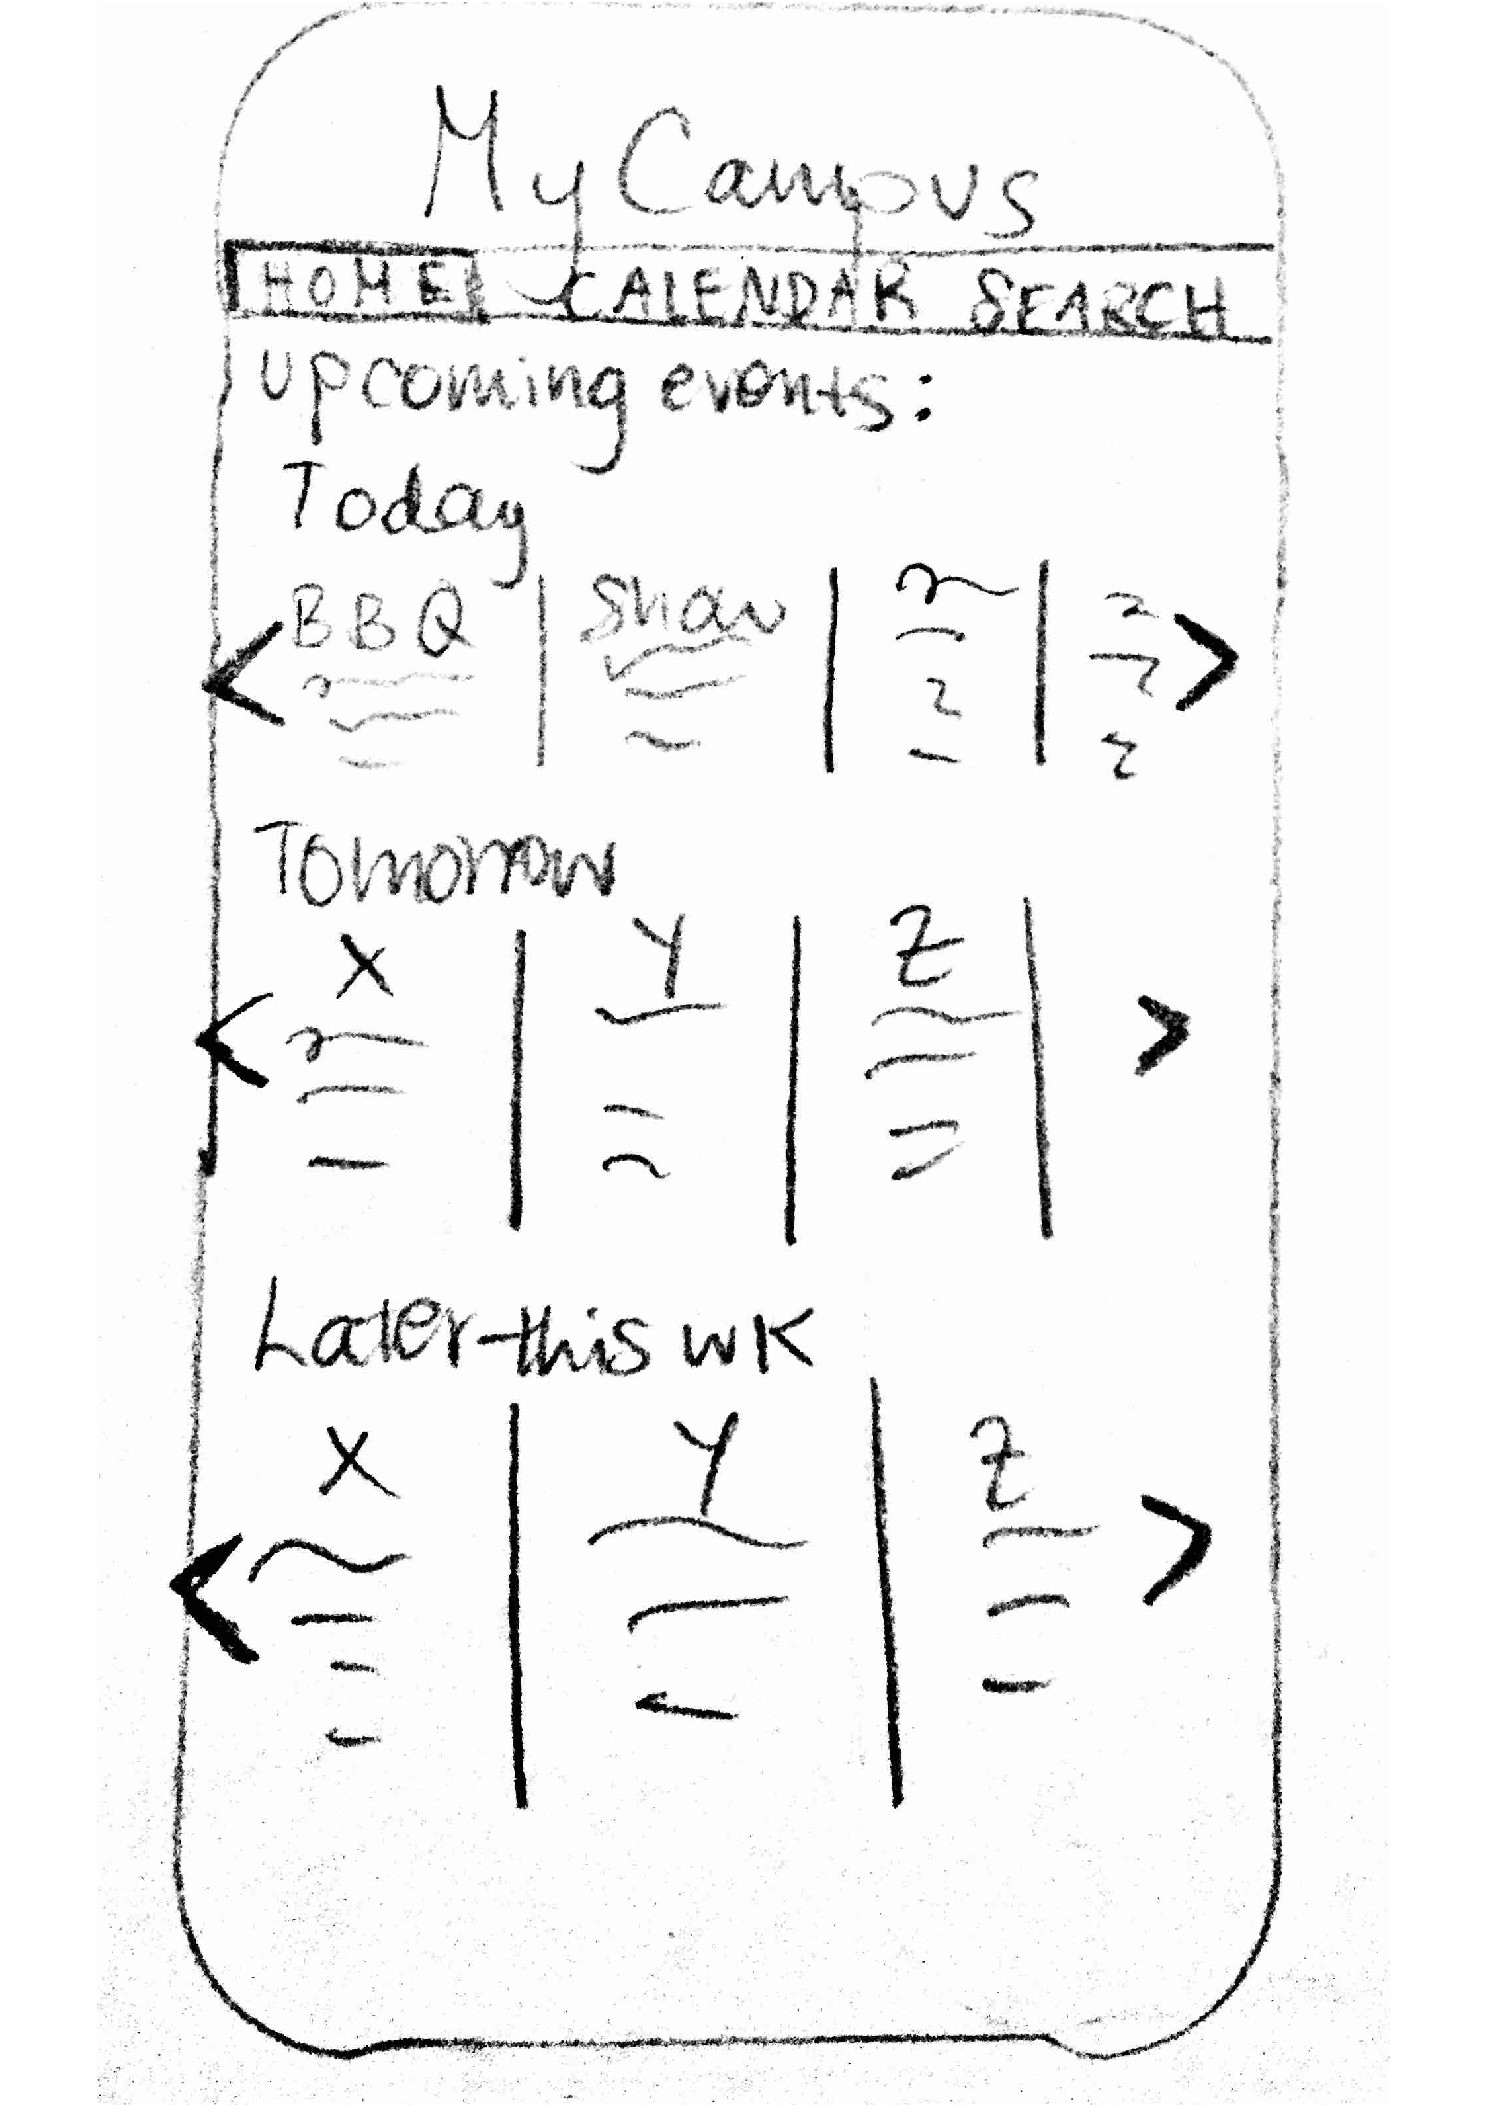 My Campus
HOME CALENDAR SEARCH
upcoming events:
Today
< BBQ | Show | | >
Tomorrow
< X | Y | Z | >
Later this wk
< X | Y | Z >